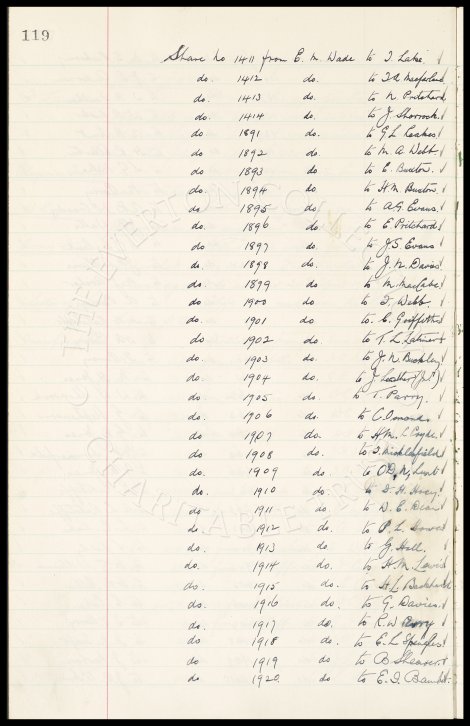 119
Share No 1411 from E. M. Wade to T. Lake
do. 1412 do. to T. A. Macfarlane
do. 1413 do. to N. Pritchard
do. 1414 do. to J. Sharrock
do. 1891 do. to G. L. Leakes
do. 1892 do. to M. A. Webb
do. 1893 do. to E. Buxton.
do. 1894 do. to H. M. Buxton.
do. 1895 do. to A. G. Evans
do. 1896 do. to E. Pritchard
do 1897 do. to J. S. Evans
do. 1898 do. to J. N. Davis
do. 1899 do to M. MacCabe
do. 1900 do to T. Webb.
do. 1901 do to E. Griffiths
do 1902 do to T. L. Latimer
do. 1903 do to J. N. Buckley
do. 1904 do. to J. Leather (Jr)
do. 1905 do to T. Parry.
do. 1906 do. to C. Osmond
do. 1907 do. to H. M. L.
do 1908 do. to
do. 1909 do. to Lunt
do. 1910 do to D. H.
do 1911 do to W. E. Dean
do 1912 do. to P. L.
do. 1913 do to G. Hall.
do 1914 do. to H. M. Lewis
do. 1915 do. to H. L.
do. 1916 do. to G. Davies
do. 1917 do. to R. W. Parry
do 1918 do. to E. L.
do 1919 do to B. Shearer
do 1920 do. to E. I.
THE EVERTON COLLECTION
CHARITABLE TRUST